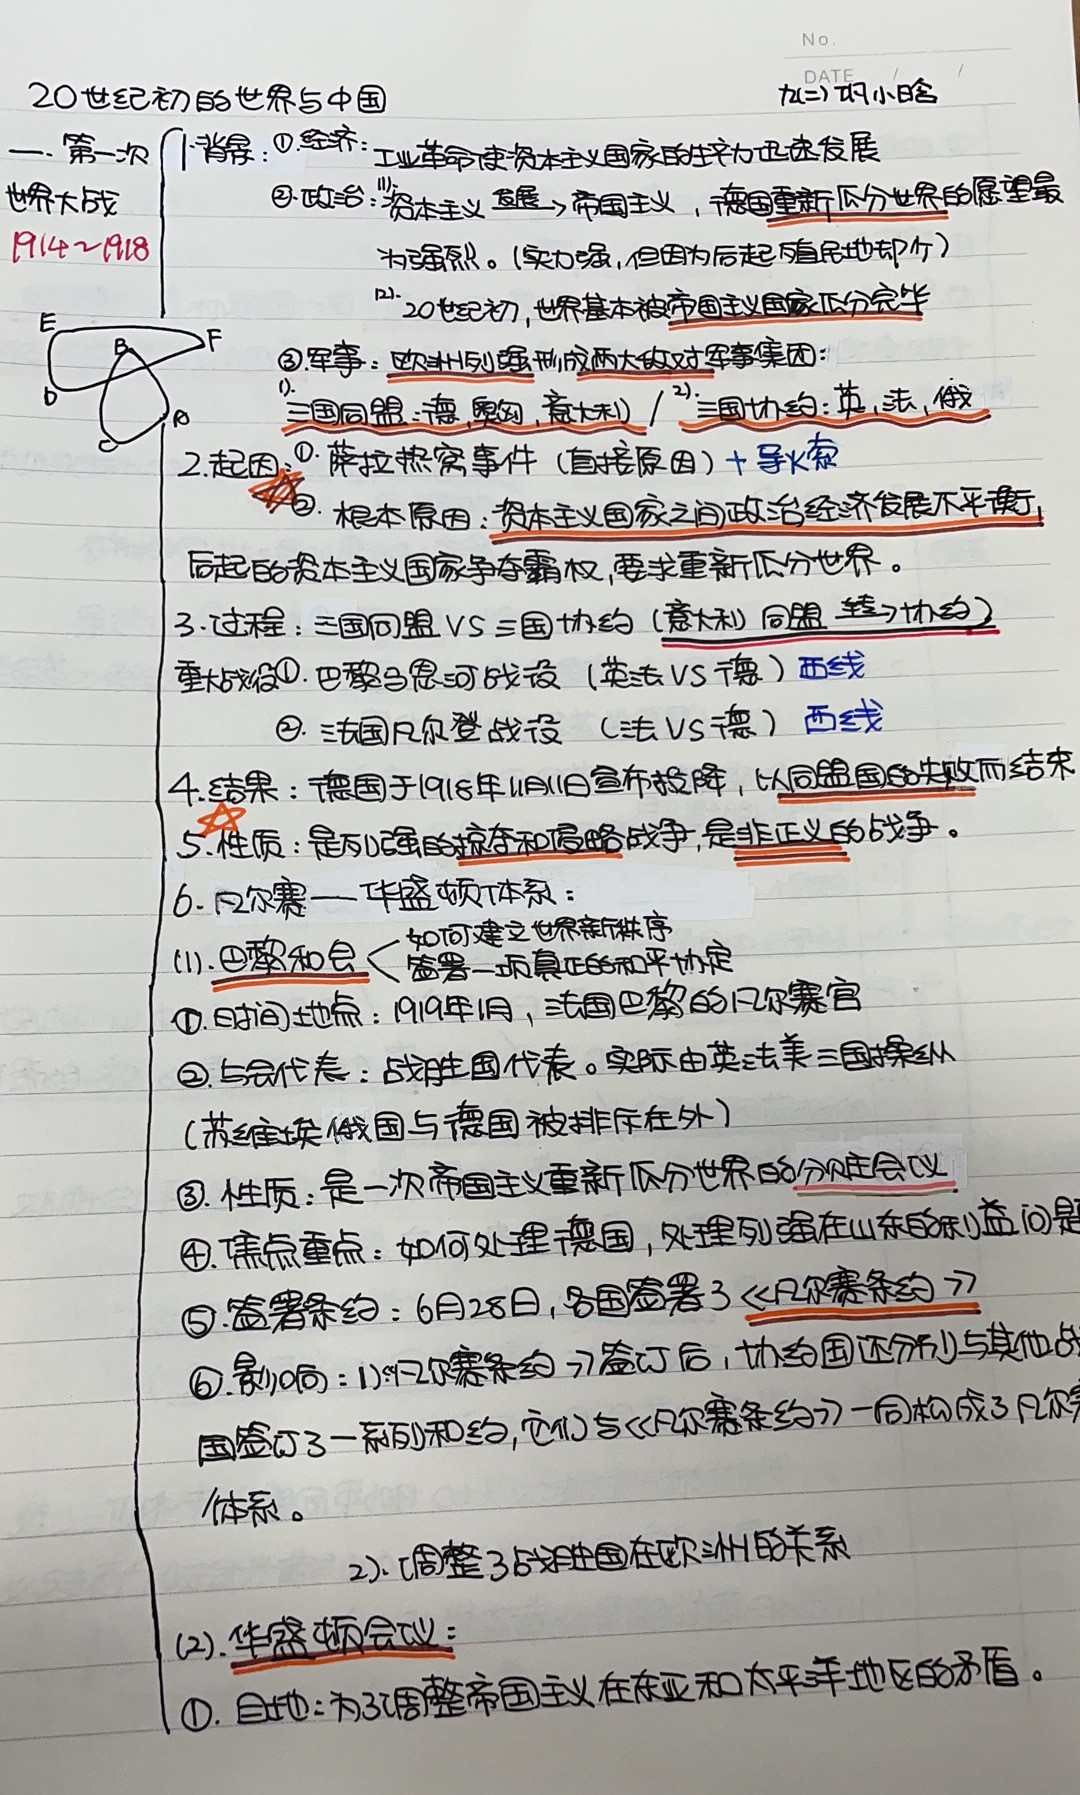 No.
DATE / /
20世纪初的世界与中国
九(二) 巩小晗
一. 第一次
世界大战
1914~1918
1.背景: ①.经济: 工业革命使资本主义国家的生产力迅速发展
②.政治: 1).资本主义 发展→帝国主义, 德国重新瓜分世界的愿望最
为强烈。(实力强,但因为后起殖民地却少)
2).20世纪初,世界基本被帝国主义国家瓜分完毕
E
F
B
D
A
C
③.军事: 欧洲列强形成两大敌对军事集团:
1).三国同盟:德,奥匈,意大利 / 2).三国协约:英,法,俄
2.起因: ①.萨拉热窝事件 (直接原因) + 导火索
②. 根本原因: 资本主义国家之间政治经济发展不平衡,
后起的资本主义国家争夺霸权,要求重新瓜分世界。
3.过程: 三国同盟VS三国协约 (意大利 同盟 转→协约)
重大战役①. 巴黎马恩河战役 (英法VS德) 西线
②. 法国凡尔登战役 (法VS德) 西线
4.结果: 德国于1918年11月11日宣布投降, 以同盟国的失败而结束
5.性质: 是列强的掠夺和侵略战争,是非正义的战争。
6.凡尔赛—华盛顿体系:
如何建立世界新秩序
(1).巴黎和会
签署一项真正的和平协定
①.时间地点: 1919年1月, 法国巴黎的凡尔赛宫
②.与会代表: 战胜国代表。实际由英法美三国操纵
(苏维埃俄国与德国被排斥在外)
③.性质: 是一次帝国主义重新瓜分世界的分赃会议
④.焦点重点: 如何处理德国, 处理列强在山东的利益问题
⑤.签署条约: 6月28日,各国签署了《凡尔赛条约》
⑥.影响: 1)《凡尔赛条约》签订后, 协约国还分别与其他战
国签订了一系列和约,它们与《凡尔赛条约》一同构成了凡尔赛
体系。
2).调整了战胜国在欧洲的关系
(2).华盛顿会议:
①.目地:为了调整帝国主义在东亚和太平洋地区的矛盾。